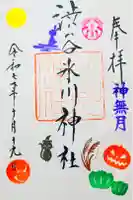 奉拝
神無月
渋谷氷川神社
令和七年十月